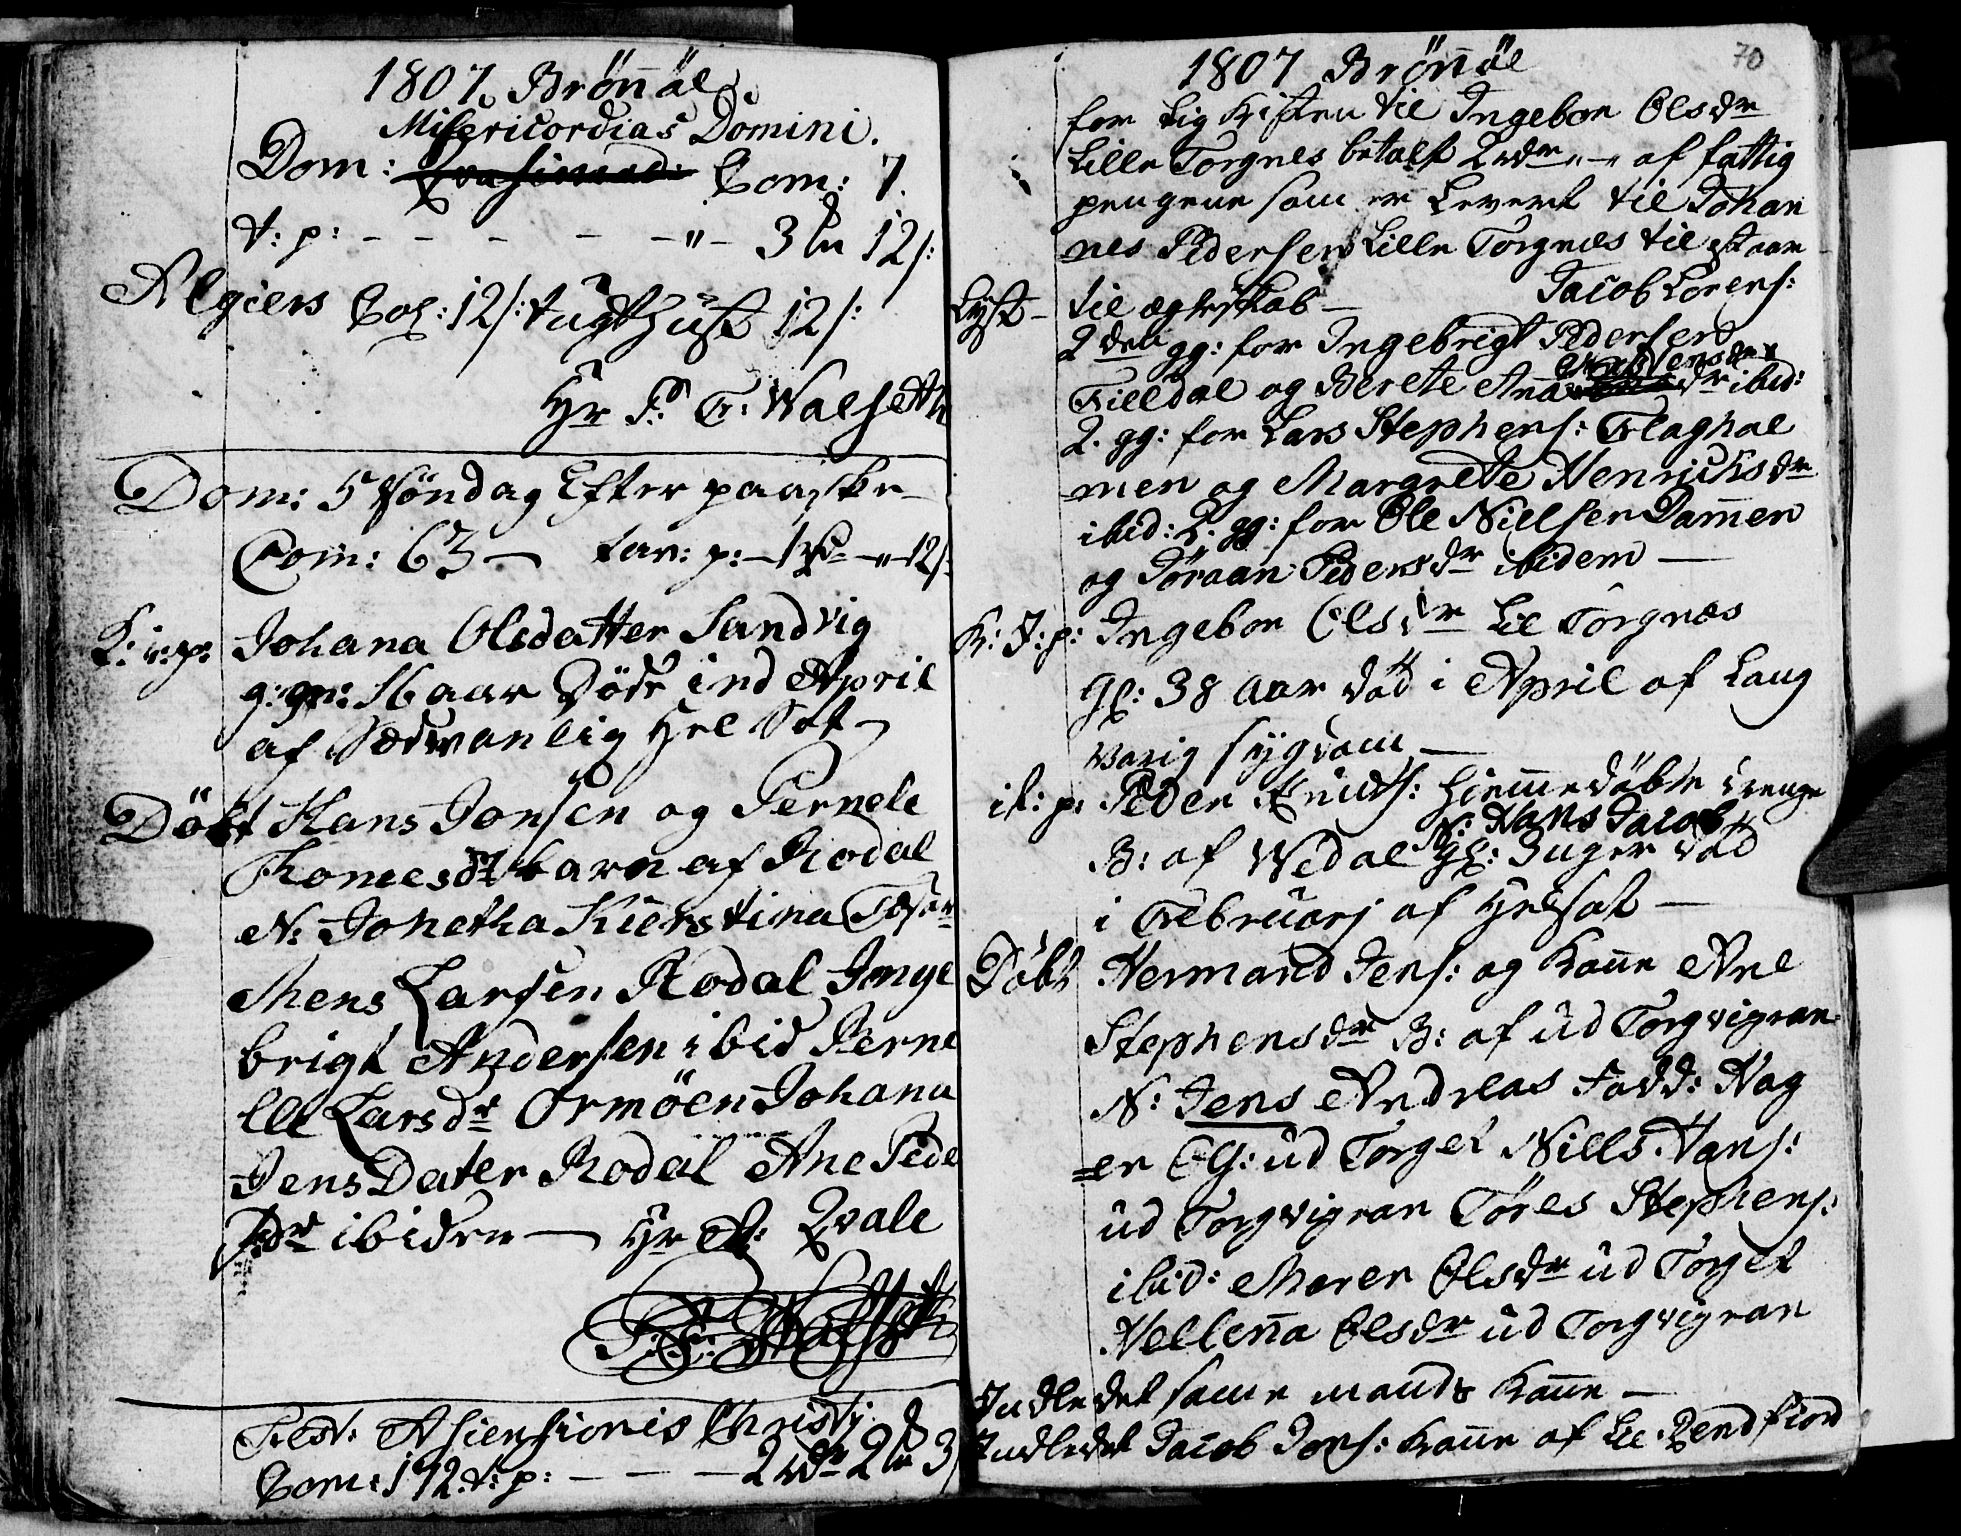 1807. Brönöe
Misericordias Domini.
Dom: Com: 7.
t: p: - - - - - " - 3 12/:
Algiers Col: 12/: tugthuset 12/:
Hr P. T. Walseth
Dom: 5 Söndag Efter paaske
Com: 63 - tav: p: - 1 - " - 12/:
K: i: p: Johana Olsdatter Sandvig
g: gn: 16 aar Döde ind April
af Sedvanlig Hel Sot
Döbt Hans Jonsen og Pernele
Thomesdr barn af Rodal
N: Jonetha Kierstina
Mens Larsen Rodal Inge
brigt Andersen ibid Perne
lle Larsdr Ormöen Johana
Jens Dater Rodal Ane Pede
dr ibidem - Hr A: Qvale
P. T. Walseth
Fest: Asiensionis Christi
Com: 172. t: p: - - - 2 rdr 2 3
70
1807 Brönöe
for Lig Kisten til Ingebor Olsdr
Lille Torgnes betalt 2 rdr - " - af fattig
pengene som er Levert til Johan
nes Pedersen Lille Torgnes til staar
Jacob Lorens:
Lyst - til ægteskab -
2den gg: for Ingebrigt Pedersen
Tilldal og Berete Ana Madsensdr ibid:
2. gg: for Lars Stephens: Tilaghol
men og Margrete Henrichsdr
ibid: 2. gg: for Ole Nielsen Damen
og Jöraan Pedersdr ibidem -
K: I: p: Ingebor Olsdr Lil Torgnes
gl: 38 aar död i April af Lang
varig sygdom -
it: p: Peder Knuds: hjemmedöbte drenge
N: Hans Jacob
B: af Wedal gl: 3 uger död
i Februarj af Helsot -
Döbt Hermand Jens: og Kone Ane
Stephensdr B: af Ud Torgvigran
N: Jens Andreas Fadd: Hag
en Ols: ud Torget Nills Hans:
ud Torgvigran Töres Stephens:
ibid: Maren Olsdr ud Torget
Hellena Olsdr ud Torgvigran
Indledet same mands Kone -
Indledet Jacob Jons: Kone af Lil: Rendfiord